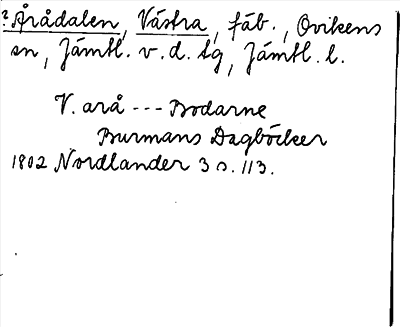 ? Arådalen, Västra, fäb., Ovikens
sn, Jämtl. v. d. tg, Jämtl. l.
V. arå --- Bodarne
Burmans Dagböcker
1802 Nordlander 3 s. 113.